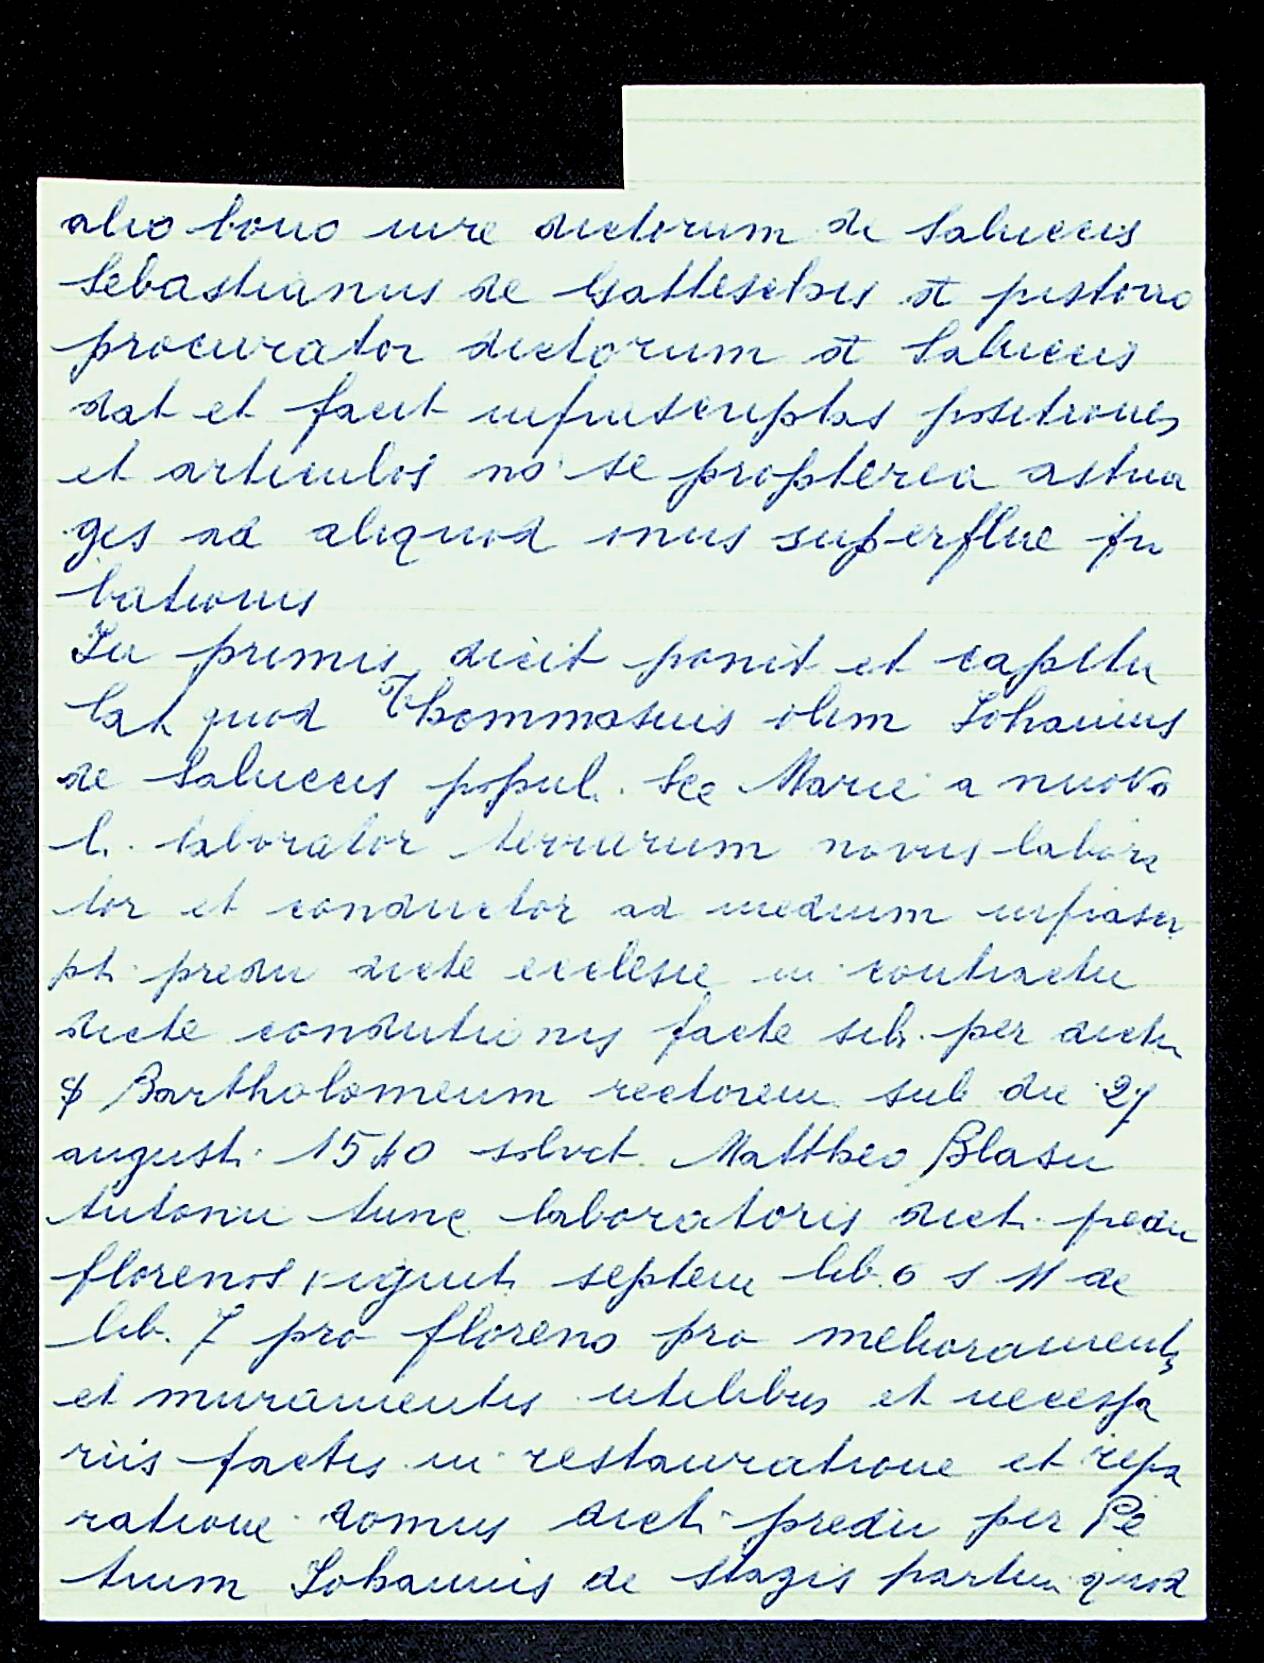 alio bono iure dictorum de Saluccis
Sebastianus de Gatteschis et pistorio
procurator dictorum de Saluccis
dat et facit infrascriptas positiones
et articulos no se propterea astrin
ges ad aliquod onus superflue
bationis
In primis dicit ponit et capitu
lat quod Thommasius olim Johannis
de Saluccis popul. Sce Marie a nuovo
l. laborator terrarum novus labora
tor et conductor ad medium infrascr
pti predii dicte ecclesie in contractu
dicte condutionis facte sibi per dictu
Bartholomeum rectorem sub die 27
augusti 1540 solvit Mattheo Blasii
Antonii tunc laboratoris dicti predii
florenos viginti septem lib. 6 s 11 de
lib. 7 pro floreno pro melioramentis
et muramentis utilibus et necessa
riis factis in restauratione et repa
ratione domus dicti predii per Pe
trum Johannis de Stagis partim quod